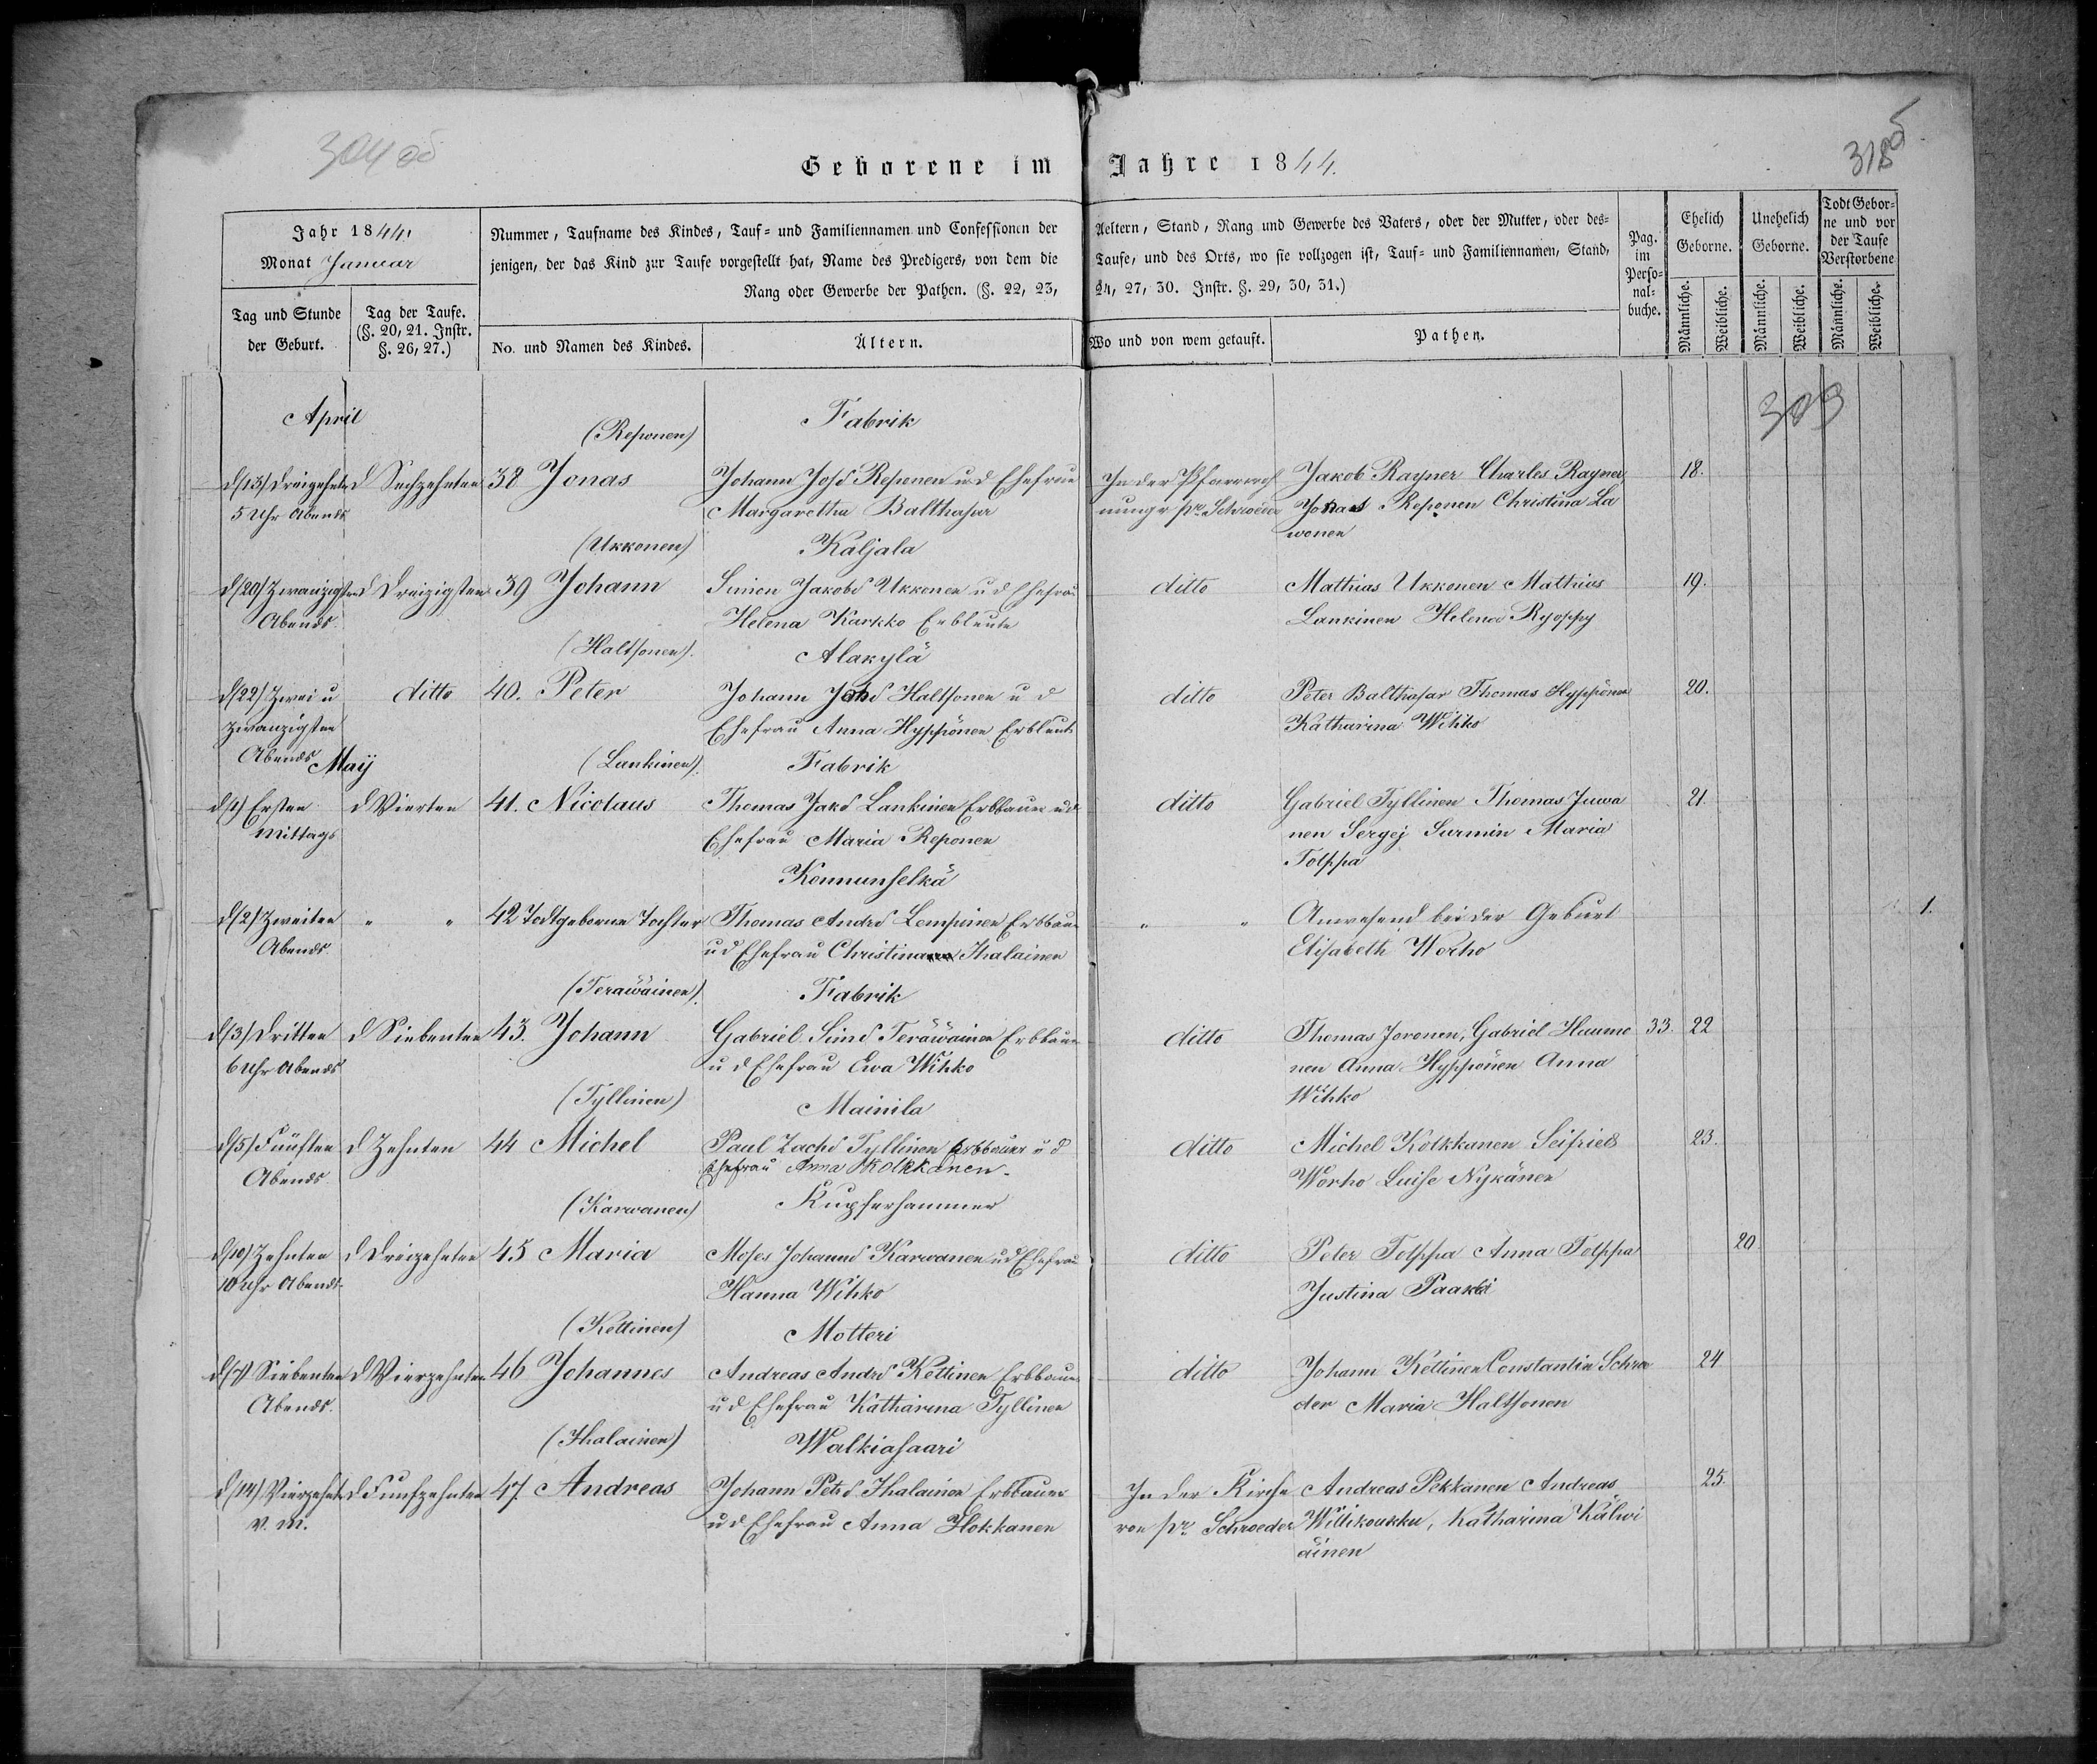 304 об
318
Geborene im Jahre 1844.
Jahr 1844.
Monat Januar
Nummer, Taufname des Kindes, Tauf- und Familiennamen und Confessionen der
jenigen, der das Kind zur Taufe vorgestellt hat, Name des Predigers, von dem die
Rang oder Gewerbe der Pathen. (§. 22, 23,
Aeltern, Stand, Rang und Gewerbe des Vaters, oder der Mutter, oder des-
Taufe, und des Orts, wo sie vollzogen ist, Tauf- und Familiennamen, Stand,
24, 27, 30. Instr. §. 29, 30, 31.)
Pag.
im
Perso-
nal-
buche.
Ehelich
Geborne.
Unehelich
Geborne.
Todt Gebor-
ne und vor
der Taufe
Verstorbene
Tag und Stunde
der Geburt.
Tag der Taufe.
(§. 20, 21. Instr.
§. 26, 27.)
No. und Namen des Kindes.
Ältern.
Wo und von wem getauft.
Pathen.
Männliche.
Weibliche.
Männliche.
Weibliche.
Männliche.
Weibliche.
April
(Reponen)
Fabrik
309
d/13/ Dreizehnten d Sechzehnten 38 Jonas Johann Johd Reponen u d Ehefrau In der Pfarrwoh Jakob Rayner Charles Rayner 18.
5 Uhr Abends Margaretha Balthasar nung v pr. Schroeder Jonas Reponen Christina La
wonen
(Ukkonen) Kaljala
d/20/ Zwanzigsten d Dreizigsten 39 Johann Simon Jakobd Ukkonen u d Ehefrau ditto Mathias Ukkonen Mathias 19.
Abends Helena Karkko Erbleute Lankinen Helena Ryoppy
(Haltsonen). Alakylä
d/22/ Zwei u ditto 40. Peter Johann Johd Haltsonen u d ditto Peter Balthasar Thomas Hyppönen 20.
zwanzigsten Ehefrau Anna Hyppönen Erbleute Katharina Wihko
Abends
May (Lankinen). Fabrik
d/1/ Ersten d Vierten 41. Nicolaus Thomas Jakd Lankinen Erbbauer u d ditto Gabriel Tyllinen Thomas Juwa 21.
Mittags Ehefrau Maria Reponen nen Sergej Surmin Maria
Tolppa
Konnunselkä
d/2/ Zweiten " " 42 Todtgeborne Tochter Thomas Andrd Lempinen Erbbauer " " Anwesend bei der Geburt 1.
Abends u d Ehefrau Christina Ihalainen Elisabeth Worho
(Teräwäinen). Fabrik
d/3/ Dritten d Siebenten 43. Johann Gabriel Simd Teräwainen Erbbauer ditto Thomas Joronen, Gabriel Haume 33. 22
6 Uhr Abends u d Ehefrau Ewa Wihko nen Anna Hyppönen Anna
Wihko
(Tyllinen) Mainila
d/5/ Fünften d Zehnten 44 Michel Paul Zachd Tyllinen Erbbauer u d ditto Michel Kolkkanen Seifried 23.
Abends Ehefrau Anna Kolkkanen. Worho Luise Nykänen
(Karwanen) Kupferhammer
d/10/ Zehnten d Dreizehnten 45 Maria Moses Johannd Karwanen u d Ehefrau ditto Peter Tolppa Anna Tolppa 20
10 Uhr Abends Hanna Wihko Justina Paakki
(Kettinen) Motteri
d/7/ Siebenten d Vierzehnten 46 Johannes Andreas Andrd Kettinen Erbbauer ditto Johann Kettinen Constantin Schroe 24
Abends. u d Ehefrau Katharina Tyllinen der Maria Haltsonen
(Ihalainen) Walkiasaari
d/14/ Vierzehnten d Funfzehnten 47. Andreas Johann Petrd Ihalainen Erbbauer In der Kirche Andreas Pekkanen Andreas 25.
v. m. u d Ehefrau Anna Hokkanen von pr. Schroeder Willikoukku, Katharina Kälwi
äinen